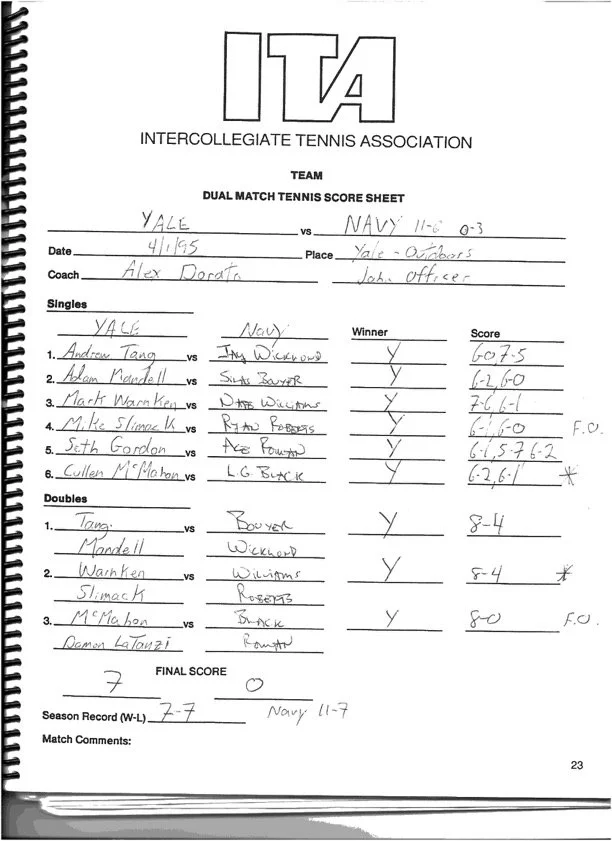 ITA
INTERCOLLEGIATE TENNIS ASSOCIATION
TEAM
DUAL MATCH TENNIS SCORE SHEET
YALE vs NAVY 11-6 0-3
Date 4/1/95 Place Yale - Outdoors
Coach Alex Dorato John Officer
Singles
YALE Navy Winner Score
1. Andrew Tang vs Wickwond Y 6-0, 7-5
2. Adam Mandell vs Silas Bouyer Y 6-2, 6-0
3. Mark Warnken vs Nate Williams Y 7-6, 6-1
4. Mike Slimack vs Ryan Roberts Y 6-1, 6-0 F.O.
5. Seth Gordon vs Y 6-1, 5-7 6-2
6. Cullen McMahon vs L.G. Black Y 6-2, 6-1 *
Doubles
1. Tang vs Bouyer Y 8-4
Mandell Wickwond
2. Warnken vs Williams Y 8-4 *
Slimack Roberts
3. McMahon vs Black Y 8-0 F.O.
Damon LaTanzi
FINAL SCORE
7 0
Season Record (W-L) 7-7 Navy 11-7
Match Comments:
23